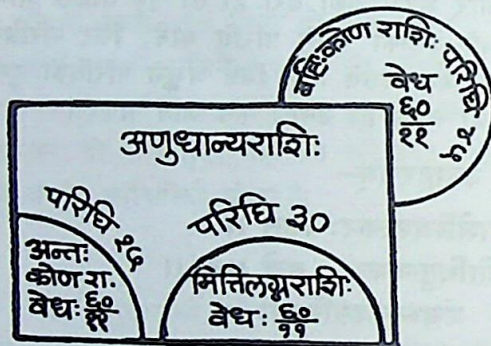 बहिःकोण राशिः परिधि ४५
वेध
६०
११
अणुधान्यराशिः
परिधि १५
परिधि ३०
अन्तः
कोण रा.
वेधः ६०
११
भित्तिलग्नराशिः
वेधः ६०
११